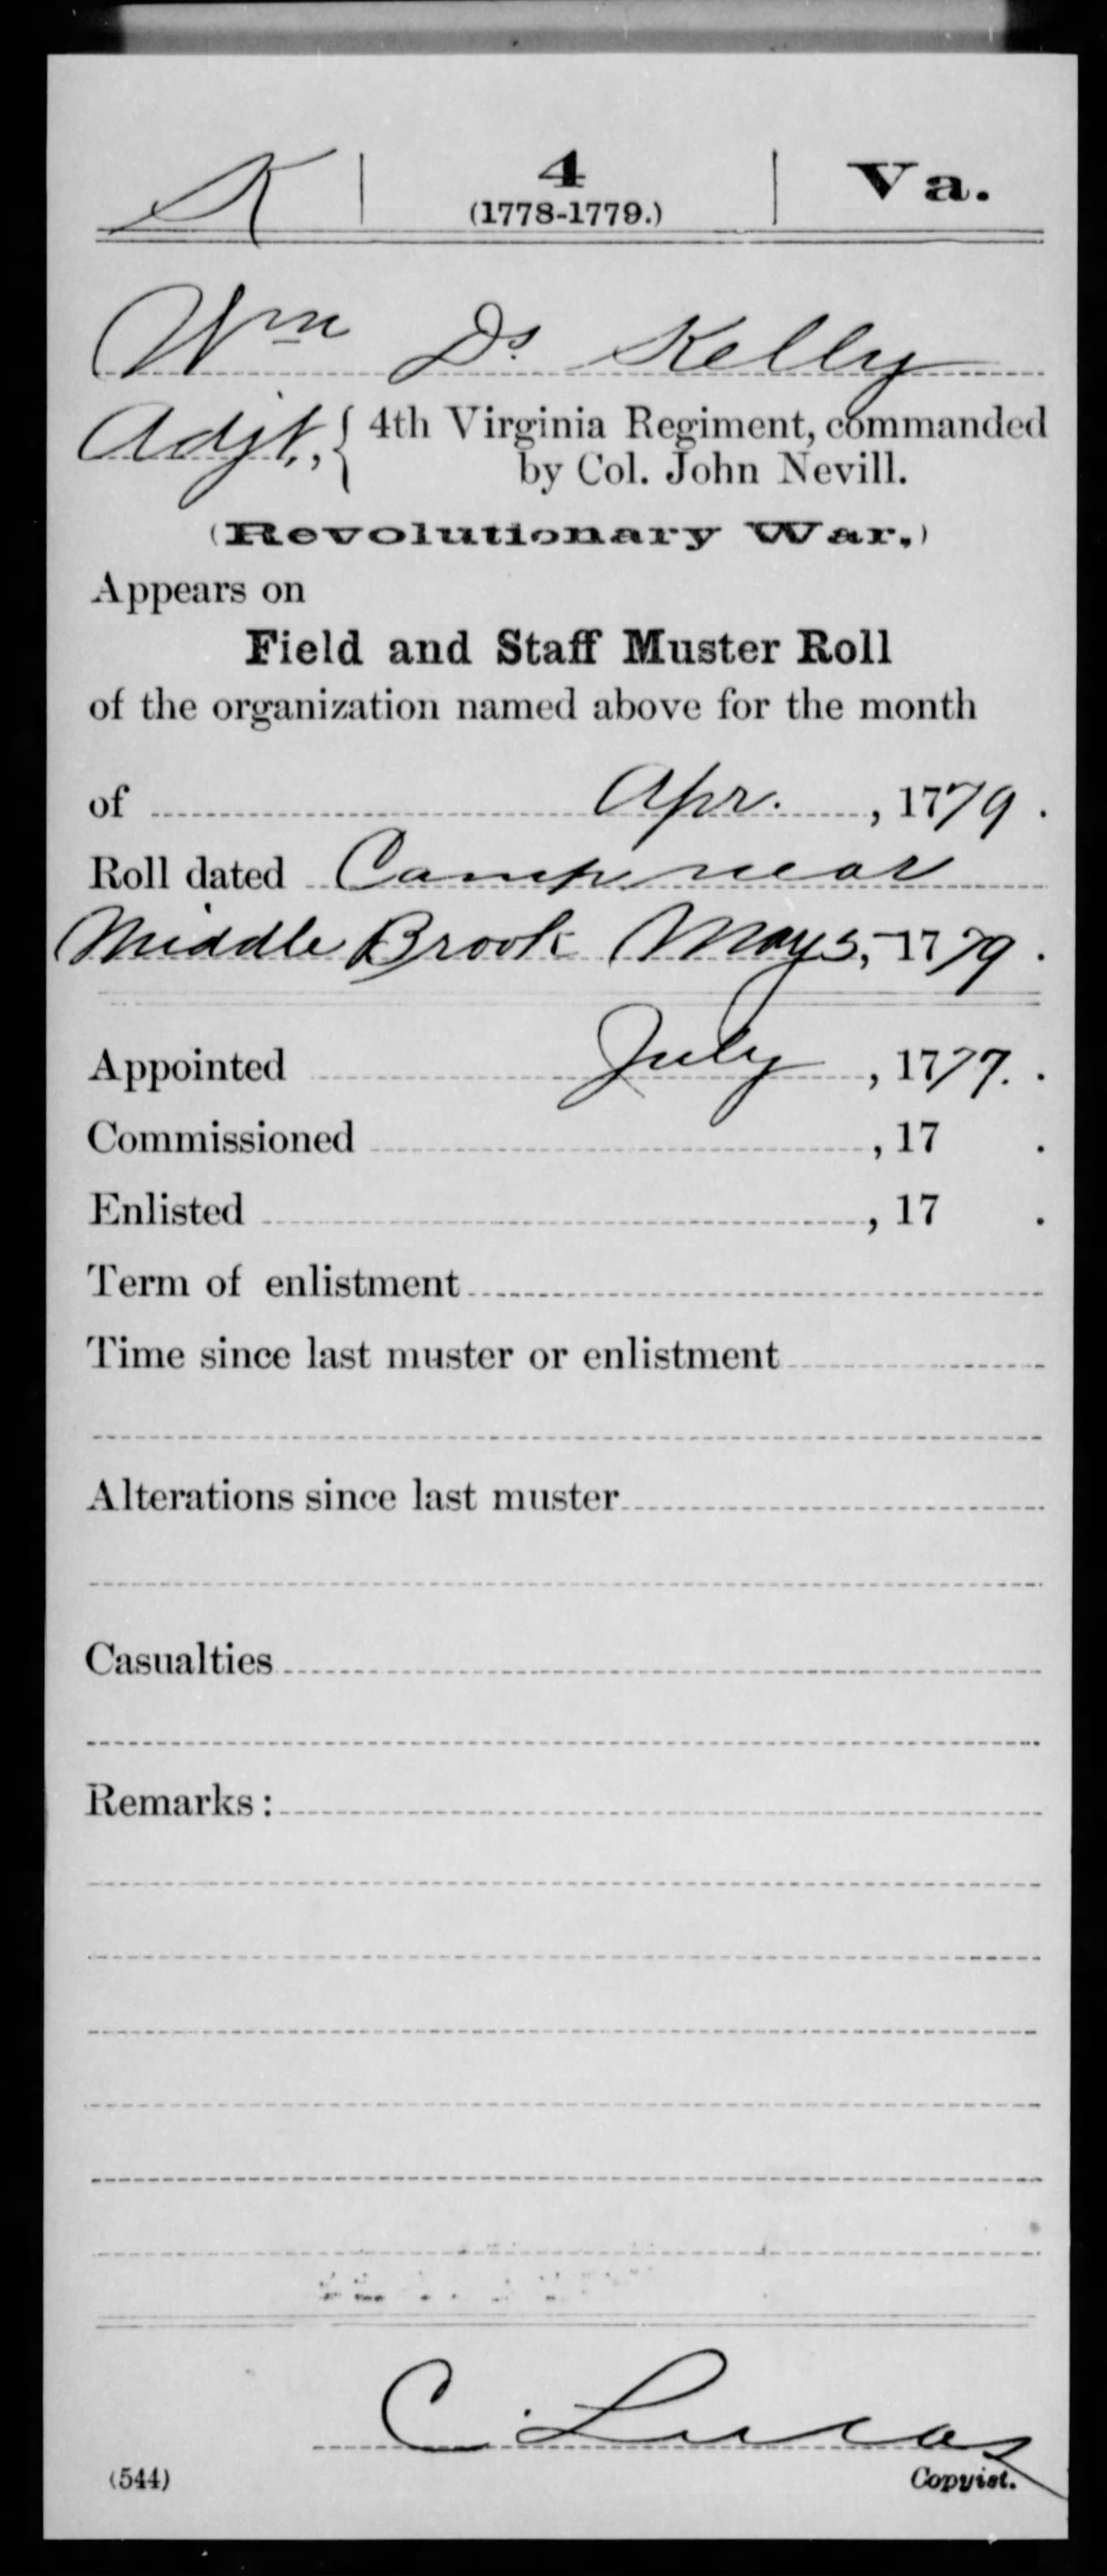 K | 4 | Va.
(1778-1779.)
Wm Ds. Kelly
Adjt., { 4th Virginia Regiment, commanded
by Col. John Nevill.
(Revolutionary War.)
Appears on
Field and Staff Muster Roll
of the organization named above for the month
of Apr. , 1779.
Roll dated Camp near
Middle Brook May 5, 1779.
Appointed July , 1777.
Commissioned , 17 .
Enlisted , 17 .
Term of enlistment
Time since last muster or enlistment
Alterations since last muster
Casualties
Remarks:
C. Lucas
(544) Copyist.